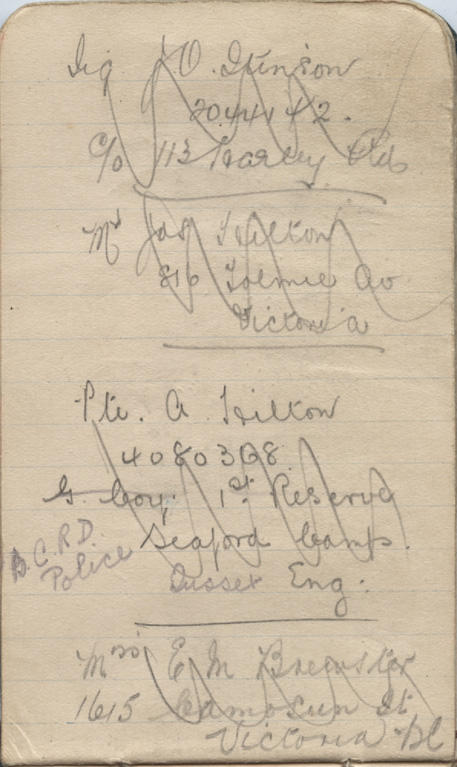 Sig J O. Stinson
2044142.
C/o 113 Battery Fld
Mr Jas Hilton
816 Tolmie Av
Victoria
Pte. A Hilton
4080308
G. Coy. 1st Reserve
Seaford Camp.
B.C.R.D. Police
Sussex Eng.
Mrs E M Brewster
1615 Camosun St
Victoria BC